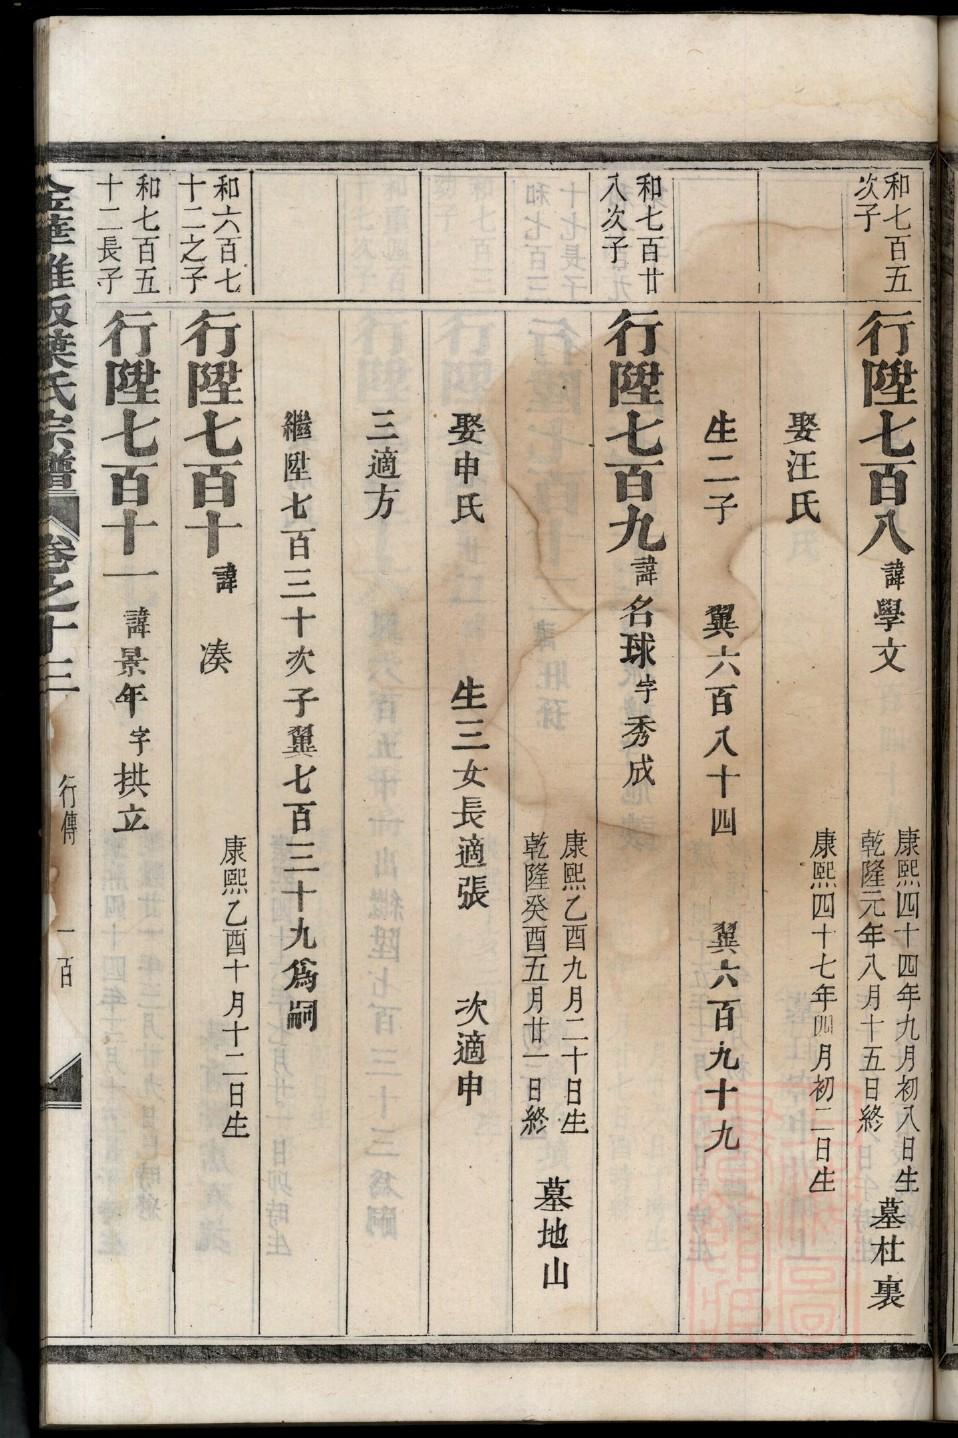 和七百五
次子
行陞七百八諱學文
康熙四十四年九月初八日生
乾隆元年八月十五日終
墓杜裏
娶汪氏
康熙四十七年四月初二日生
生二子 翼六百八十四 翼六百九十九
和七百廿
八次子
行陞七百九諱名球字秀成
康熙乙酉九月二十日生
乾隆癸酉五月廿一日終
墓地山
娶申氏 生三女長適張 次適申
三適方
繼陞七百三十次子翼七百三十九爲嗣
和六百七
十二之子
行陞七百十諱 湊
康熙乙酉十月十二日生
和七百五
十二長子
行陞七百十一諱景年字拱立
金華 葉氏宗譜 卷之十三 行傳 一百